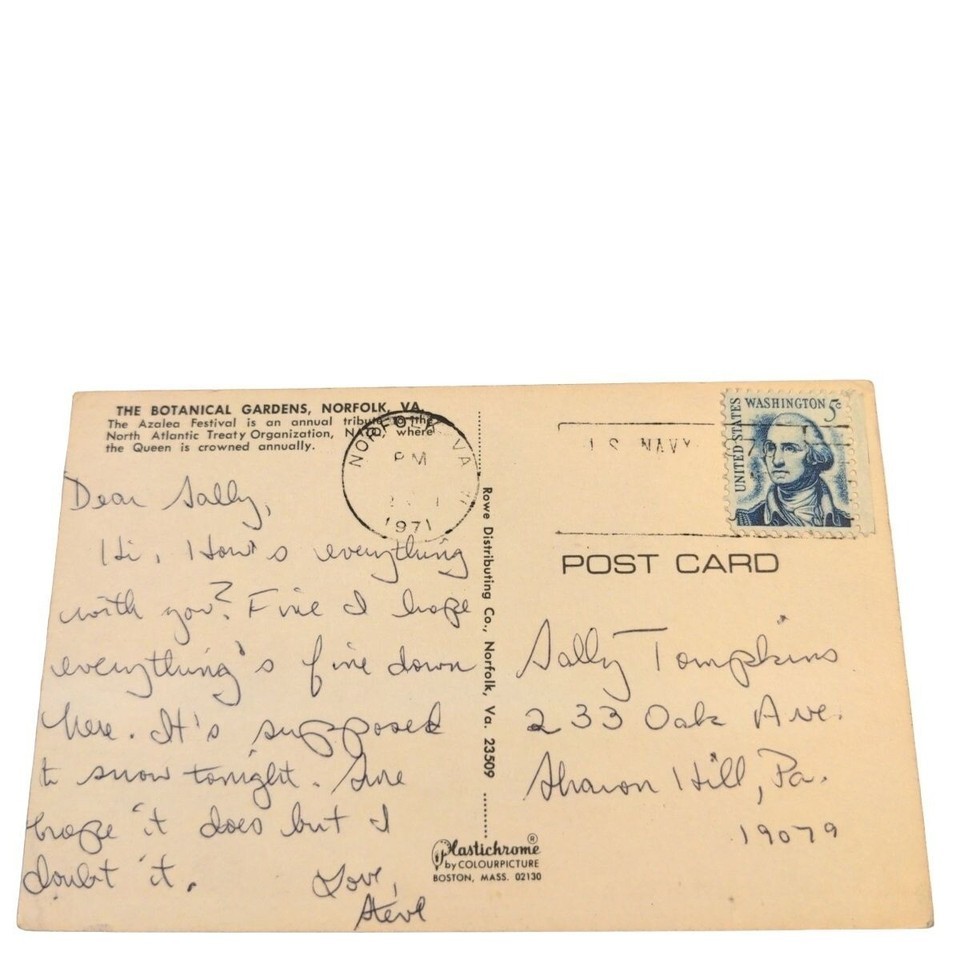 THE BOTANICAL GARDENS, NORFOLK, VA.
The Azalea Festival is an annual tribute to the
North Atlantic Treaty Organization, NATO, where
the Queen is crowned annually.
NORFOLK VA
PM
1971
U.S. NAVY
UNITED STATES
WASHINGTON 5c
Dear Sally,
Hi, How's everything
with you? Fine I hope
everything's fine down
here. It's supposed
to snow tonight. Sure
hope it does but I
doubt it.
Love,
Steve
Rowe Distributing Co., Norfolk, Va. 23509
Plastichrome®
by COLOURPICTURE
BOSTON, MASS. 02130
POST CARD
Sally Tompkins
233 Oak Ave.
Sharon Hill, Pa.
19079